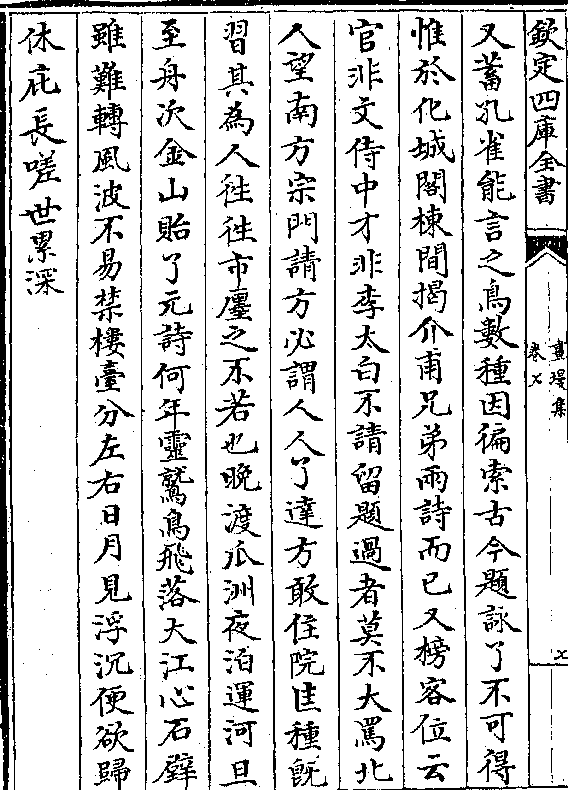 欽定四庫全書
畫墁集
卷七
七
又蓄孔雀能言之鳥數種因徧索古今題詠了不可得
惟於化城閣棟間揭介甫兄弟兩詩而已又榜客位云
官非文侍中才非李太白不請留題過者莫不大罵北
人望南方宗門請方必謂人人了達方敢住院隹種旣
習其為人徃徃市廛之不若也晚渡爪洲夜泊運河旦
至舟次金山貽了元詩何年靈鷲鳥飛落大江心石壁
雖難轉風波不易禁樓臺分左右日月見浮沉便欲歸
休庇長嗟世累深